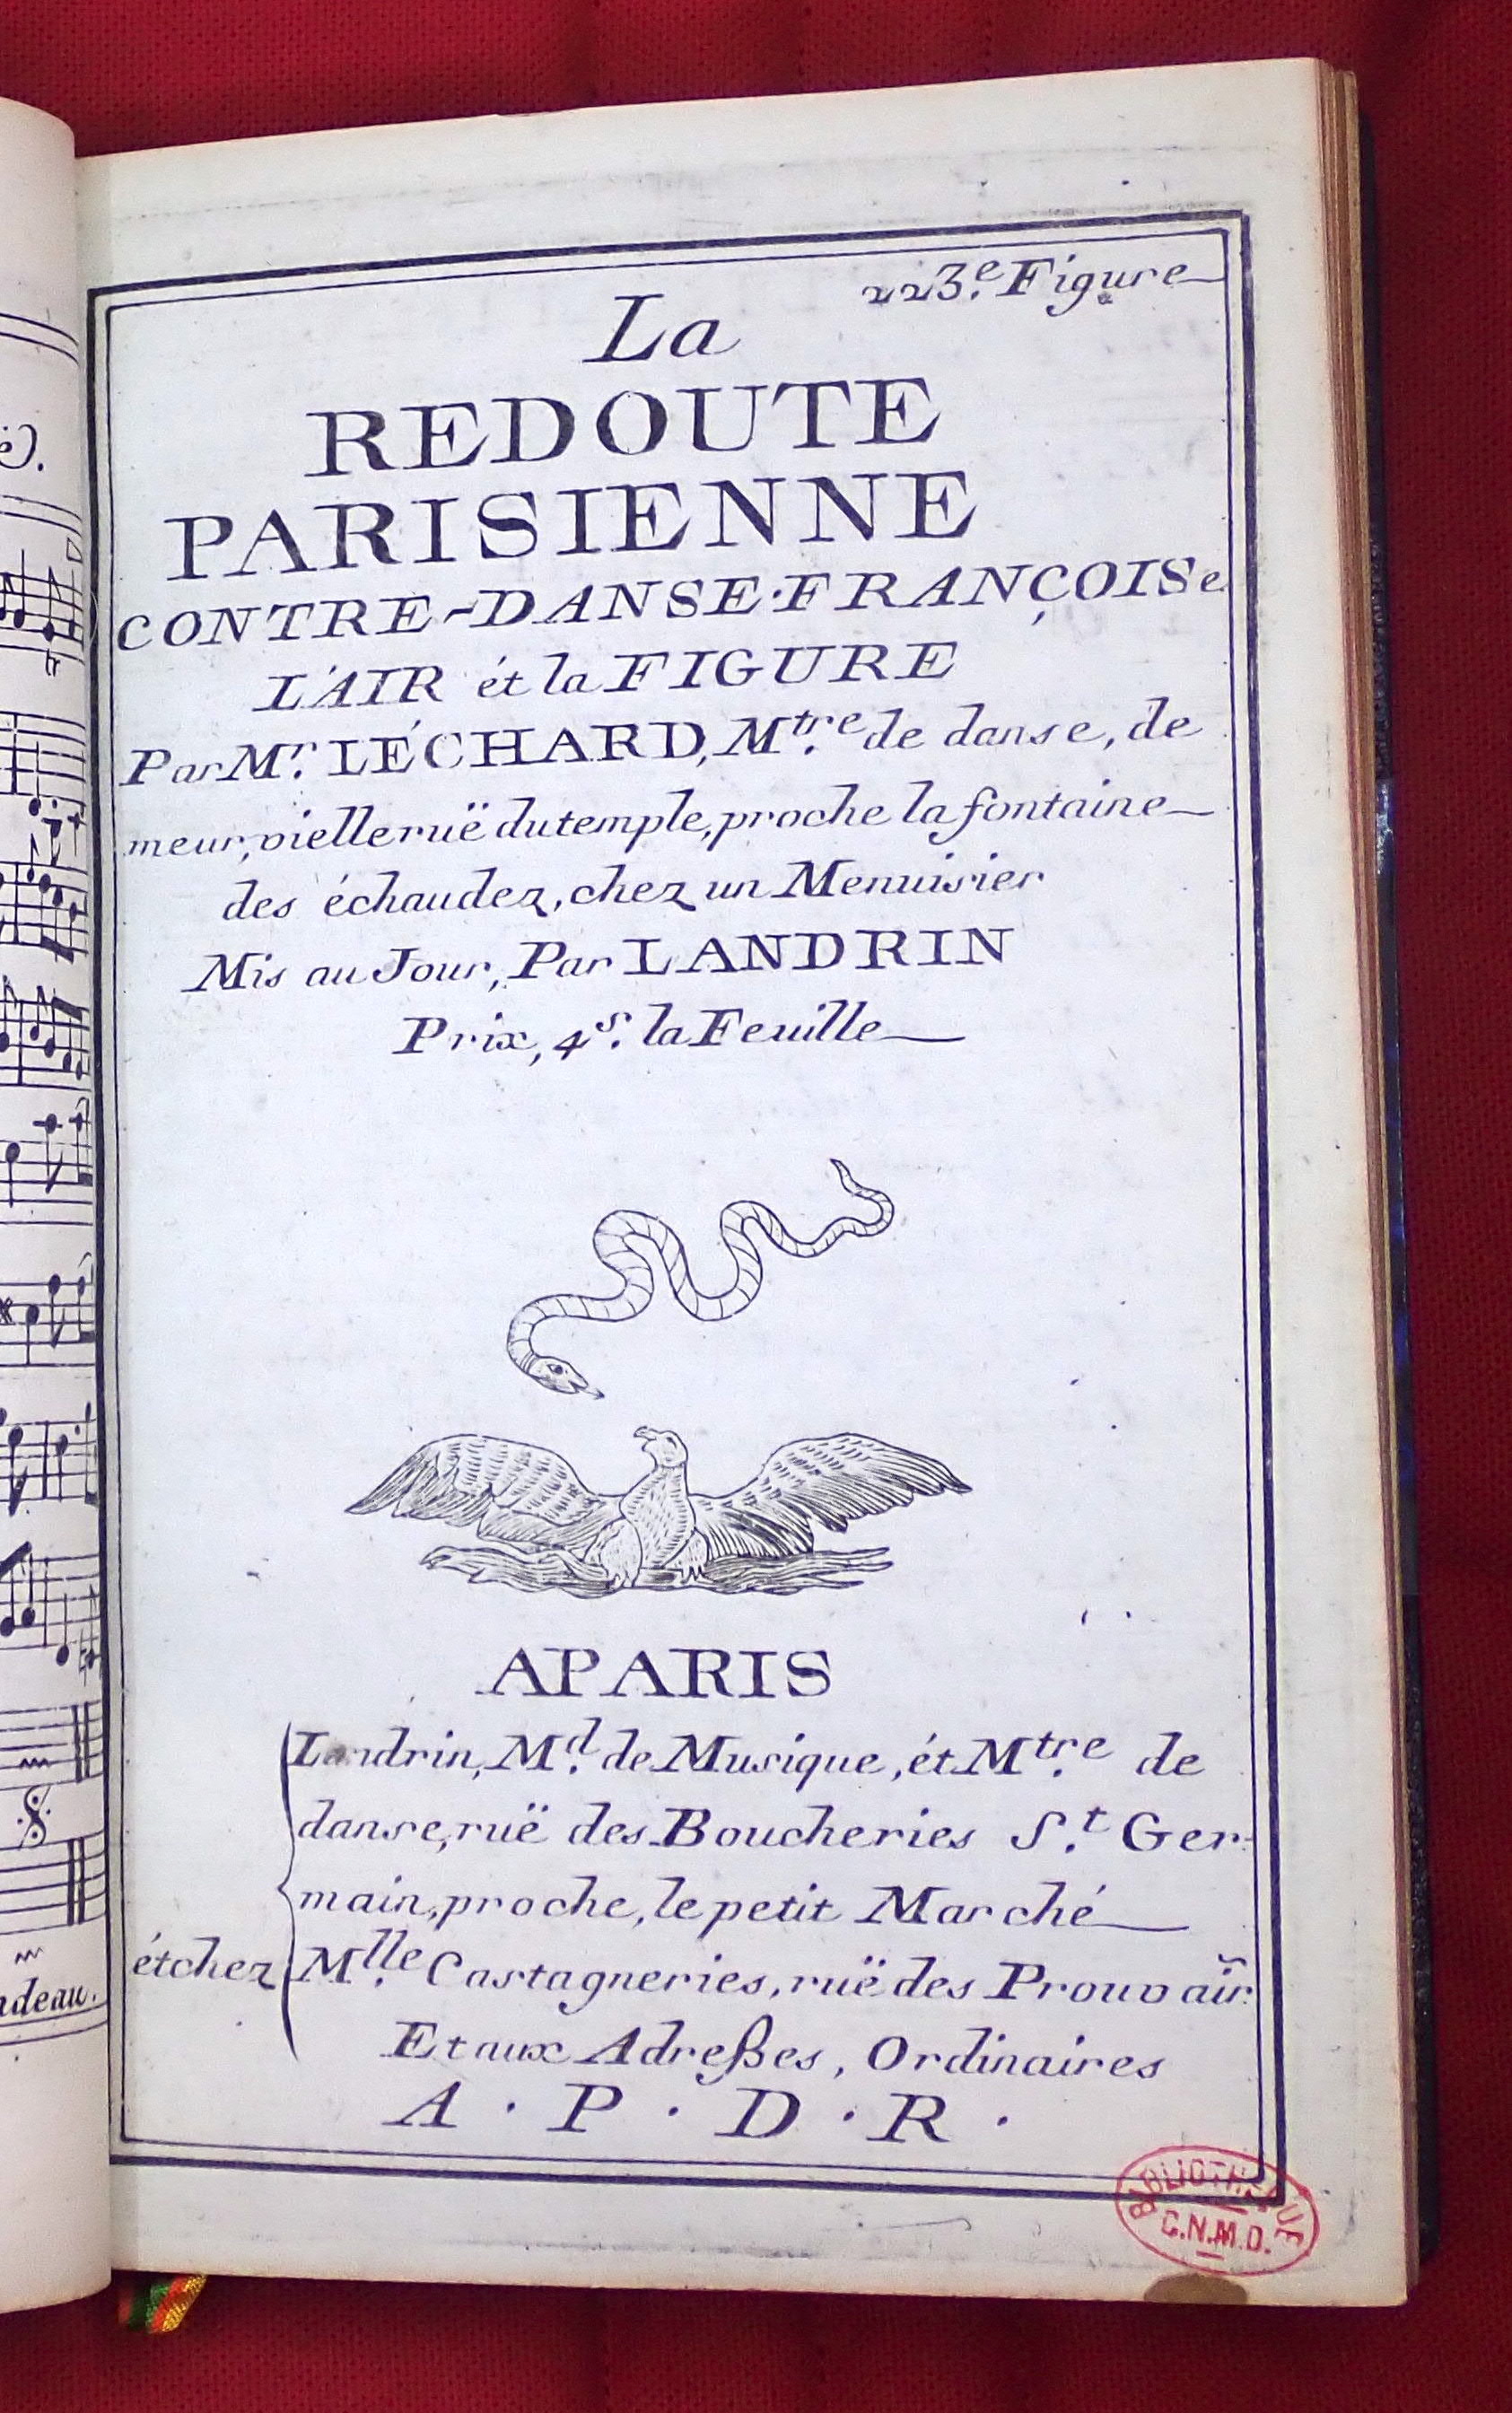 223.e Figure
La
REDOUTE
PARISIENNE
CONTRE-DANSE·FRANÇOISe
L'AIR ét la FIGURE
Par Mr. LÉCHARD, Mtre. de danse, de
meur, vielle ruë du temple, proche la fontaine
des échaudez, chez un Menuisier
Mis au Jour, Par LANDRIN
Prix, 4s. la Feuille
A PARIS
Landrin, Md. de Musique, ét Mtre. de
danse, ruë des Boucheries St. Ger-
main, proche, le petit Marché
ét chez Mlle. Castagneries, ruë des Prouvair.
Et aux Adreßes, Ordinaires
A · P · D · R ·
BIBLIOTHEQUE
C.N.M.D.
deau.